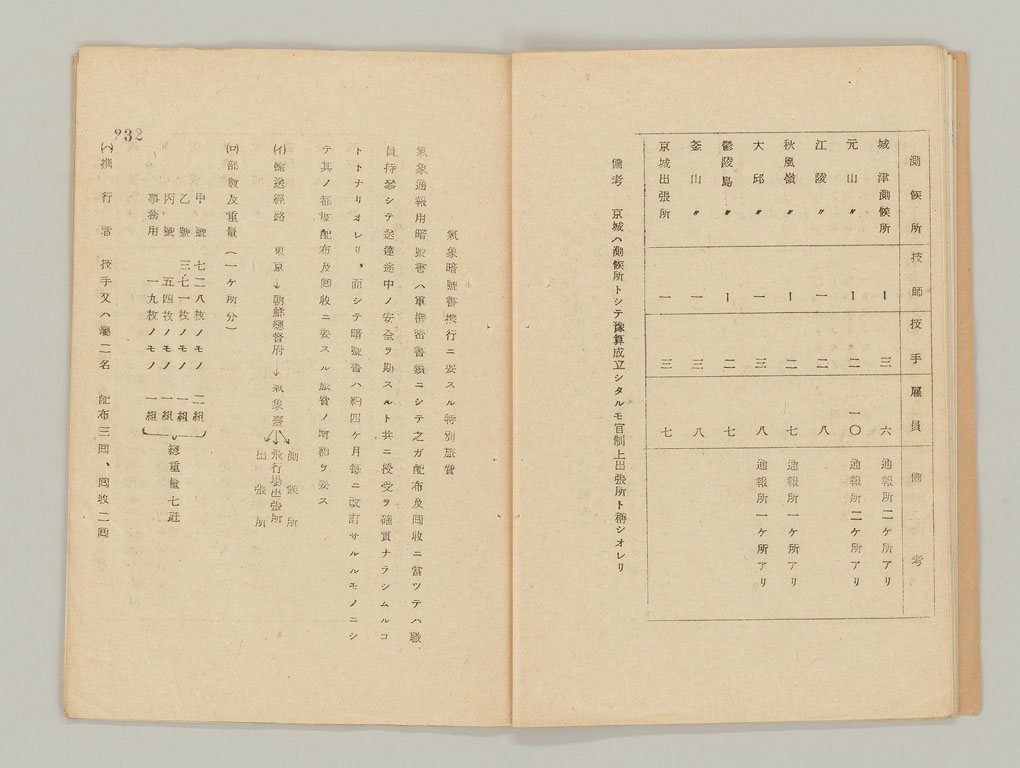 測候所 技師 技手 雇員 備考
城津測候所 一 三 六 通報所二ケ所アリ
元山〃 一 二 一〇 通報所二ケ所アリ
江陵〃 一 二 八
秋風嶺〃 一 二 七 通報所一ケ所アリ
大邱〃 一 三 八 通報所一ケ所アリ
鬱陵島〃 一 二 七
釜山〃 一 三 八
京城出張所 一 三 七
備考 京城ハ測候所トシテ豫算成立シタルモ官制上出張所ト稱シオレリ
氣象暗號書携行ニ要スル特別旅費
氣象通報用暗號書ハ軍機密書類ニシテ之ガ配布及囘收ニ當ツテハ職
員持參シテ送達途中ノ安全ヲ期スルト共ニ授受ヲ確實ナラシムルコ
トトナリオレリ、而シテ暗號書ハ約四ケ月每ニ改訂サルルモノニシ
テ其ノ都度配布及囘收ニ要スル旅費ノ增額ヲ要ス
(イ)輸送經路 東京→朝鮮總督府→氣象臺
測候所
飛行場出張所
出張所
(ロ)部數及重量(一ケ所分)
甲號 七二八枚ノモノ 二組
乙號 三七一枚ノモノ 一組
丙號 五四枚ノモノ 一組
事務用 一九枚ノモノ 一組
總重量七瓩
(ハ)携行者 技手又ハ屬二名 配布三囘、囘收二囘
232